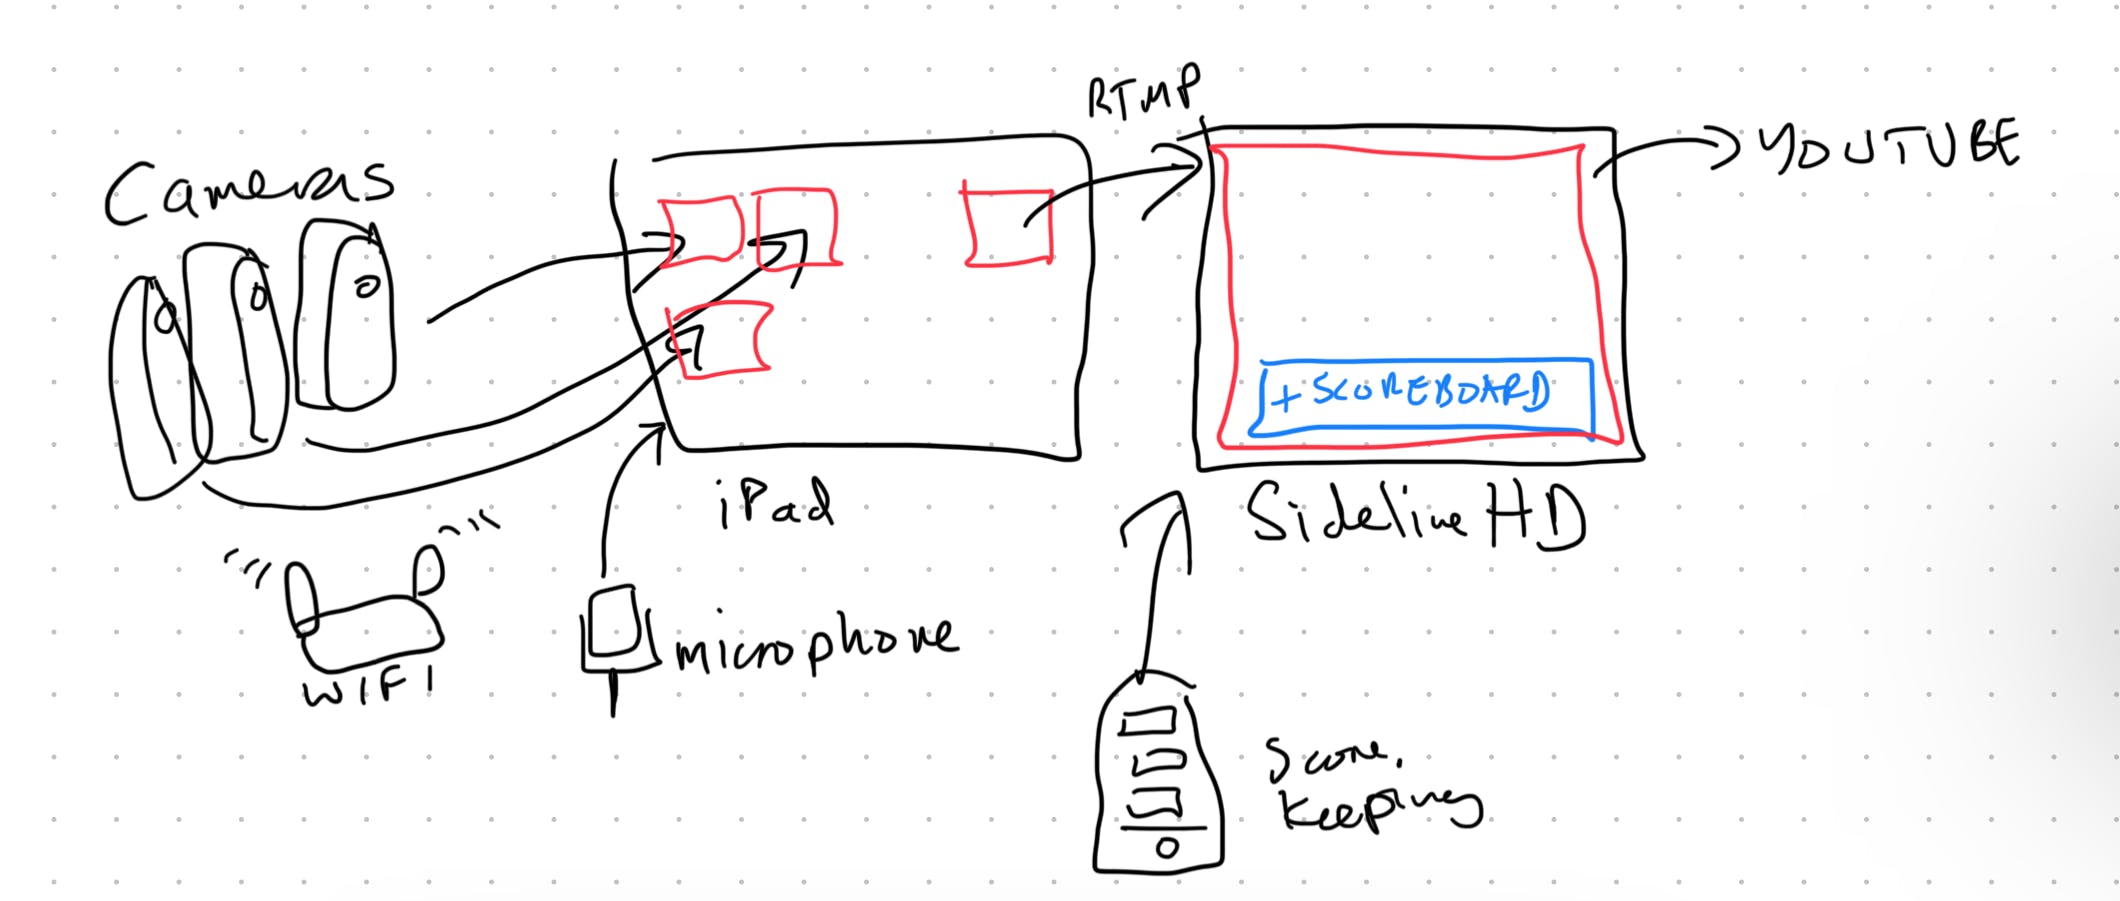 Cameras
RTMP
YOUTUBE
+ SCOREBOARD
iPad
Sideline HD
WIFI
microphone
Score.
keeping